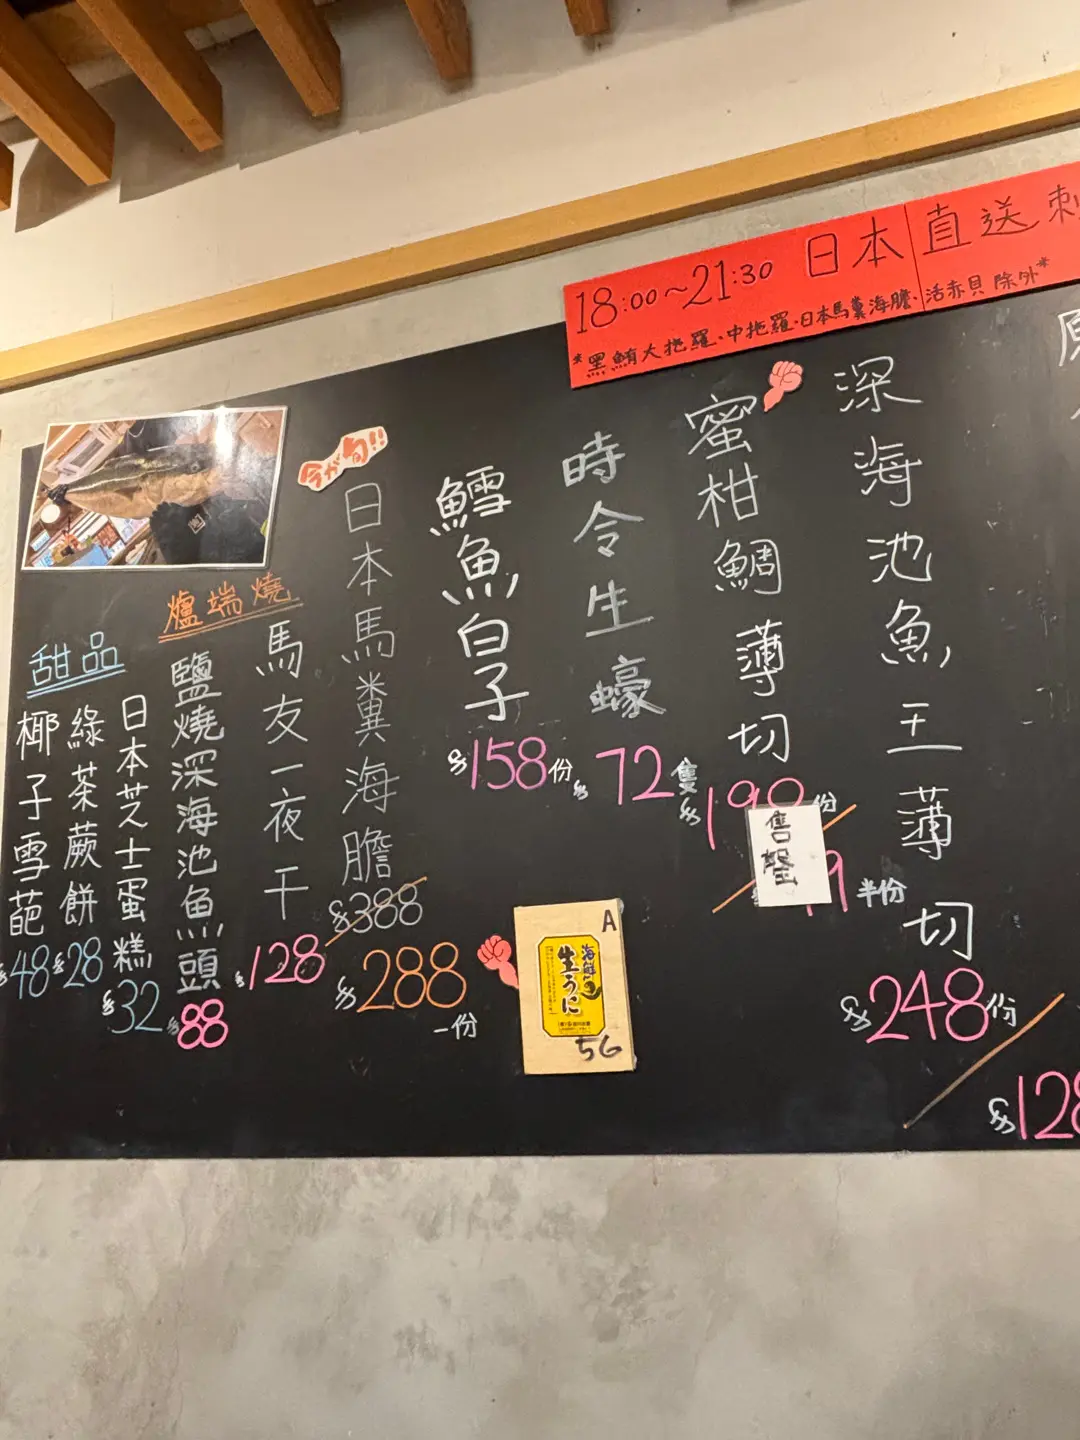 18:00~21:30 日本直送
*黑鮪大拖羅、中拖羅、日本馬糞海膽、活赤貝 除外*
深海池魚王薄切
$248份
$128
蜜柑鯛薄切
$198份
9半份
售罄
時令生蠔
$72隻
鱈魚白子
$158份
今が旬!!
日本馬糞海膽
$388
$288
一份
A
海鮮
生うに
56
爐端燒
馬友一夜干
$128
鹽燒深海池魚頭
$88
甜品
日本芝士蛋糕
$32
綠茶蕨餅
$28
椰子雪葩
$48